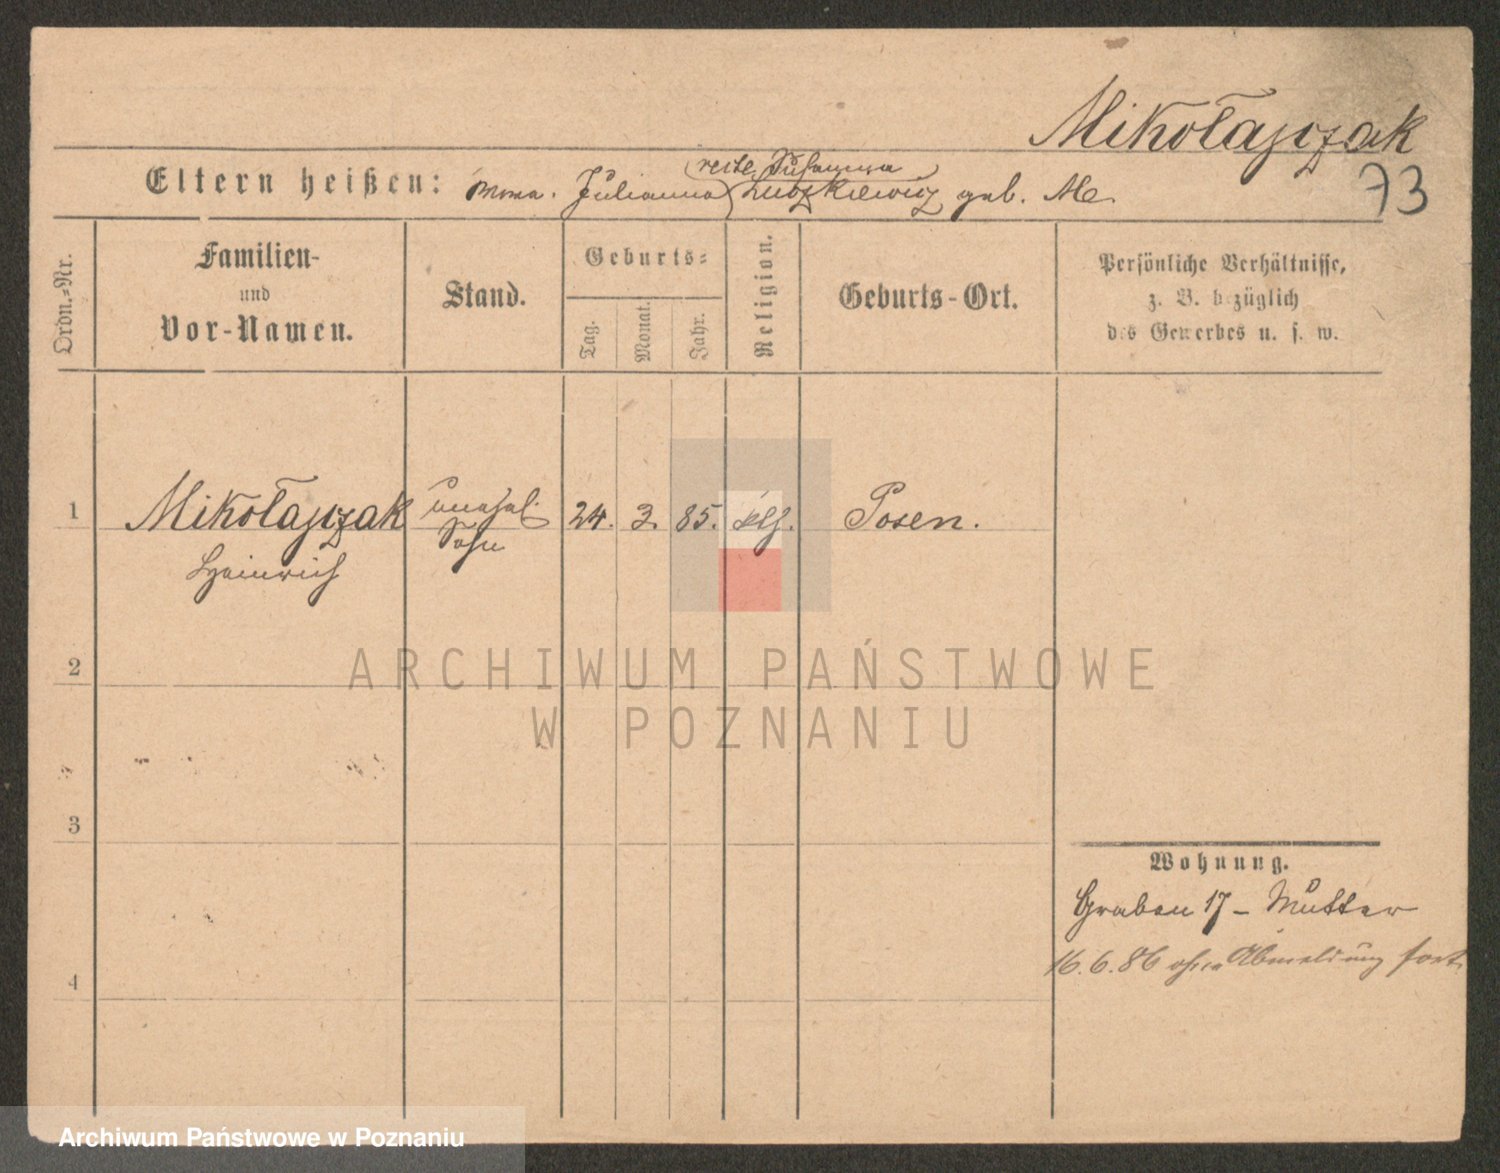 Mikołajczak
recte Susanna
Eltern heißen: Julianna Luszkiewicz geb. M.
73
Ordn.-Nr.
Familien-
und
Vor-Namen.
Stand.
Geburts-
Tag.
Monat.
Jahr.
Religion.
Geburts-Ort.
Persönliche Verhältnisse,
z. B. bezüglich
des Gewerbes u. s. w.
1 Mikołajczak unehel. 24. 3. 85. Posen.
Heinrich Sohn
2
ARCHIWUM PAŃSTWOWE
W POZNANIU
3
Wohnung.
Graben 17 - Mutter
16.6.86 ohne Abmeldung fort.
4
Archiwum Państwowe w Poznaniu